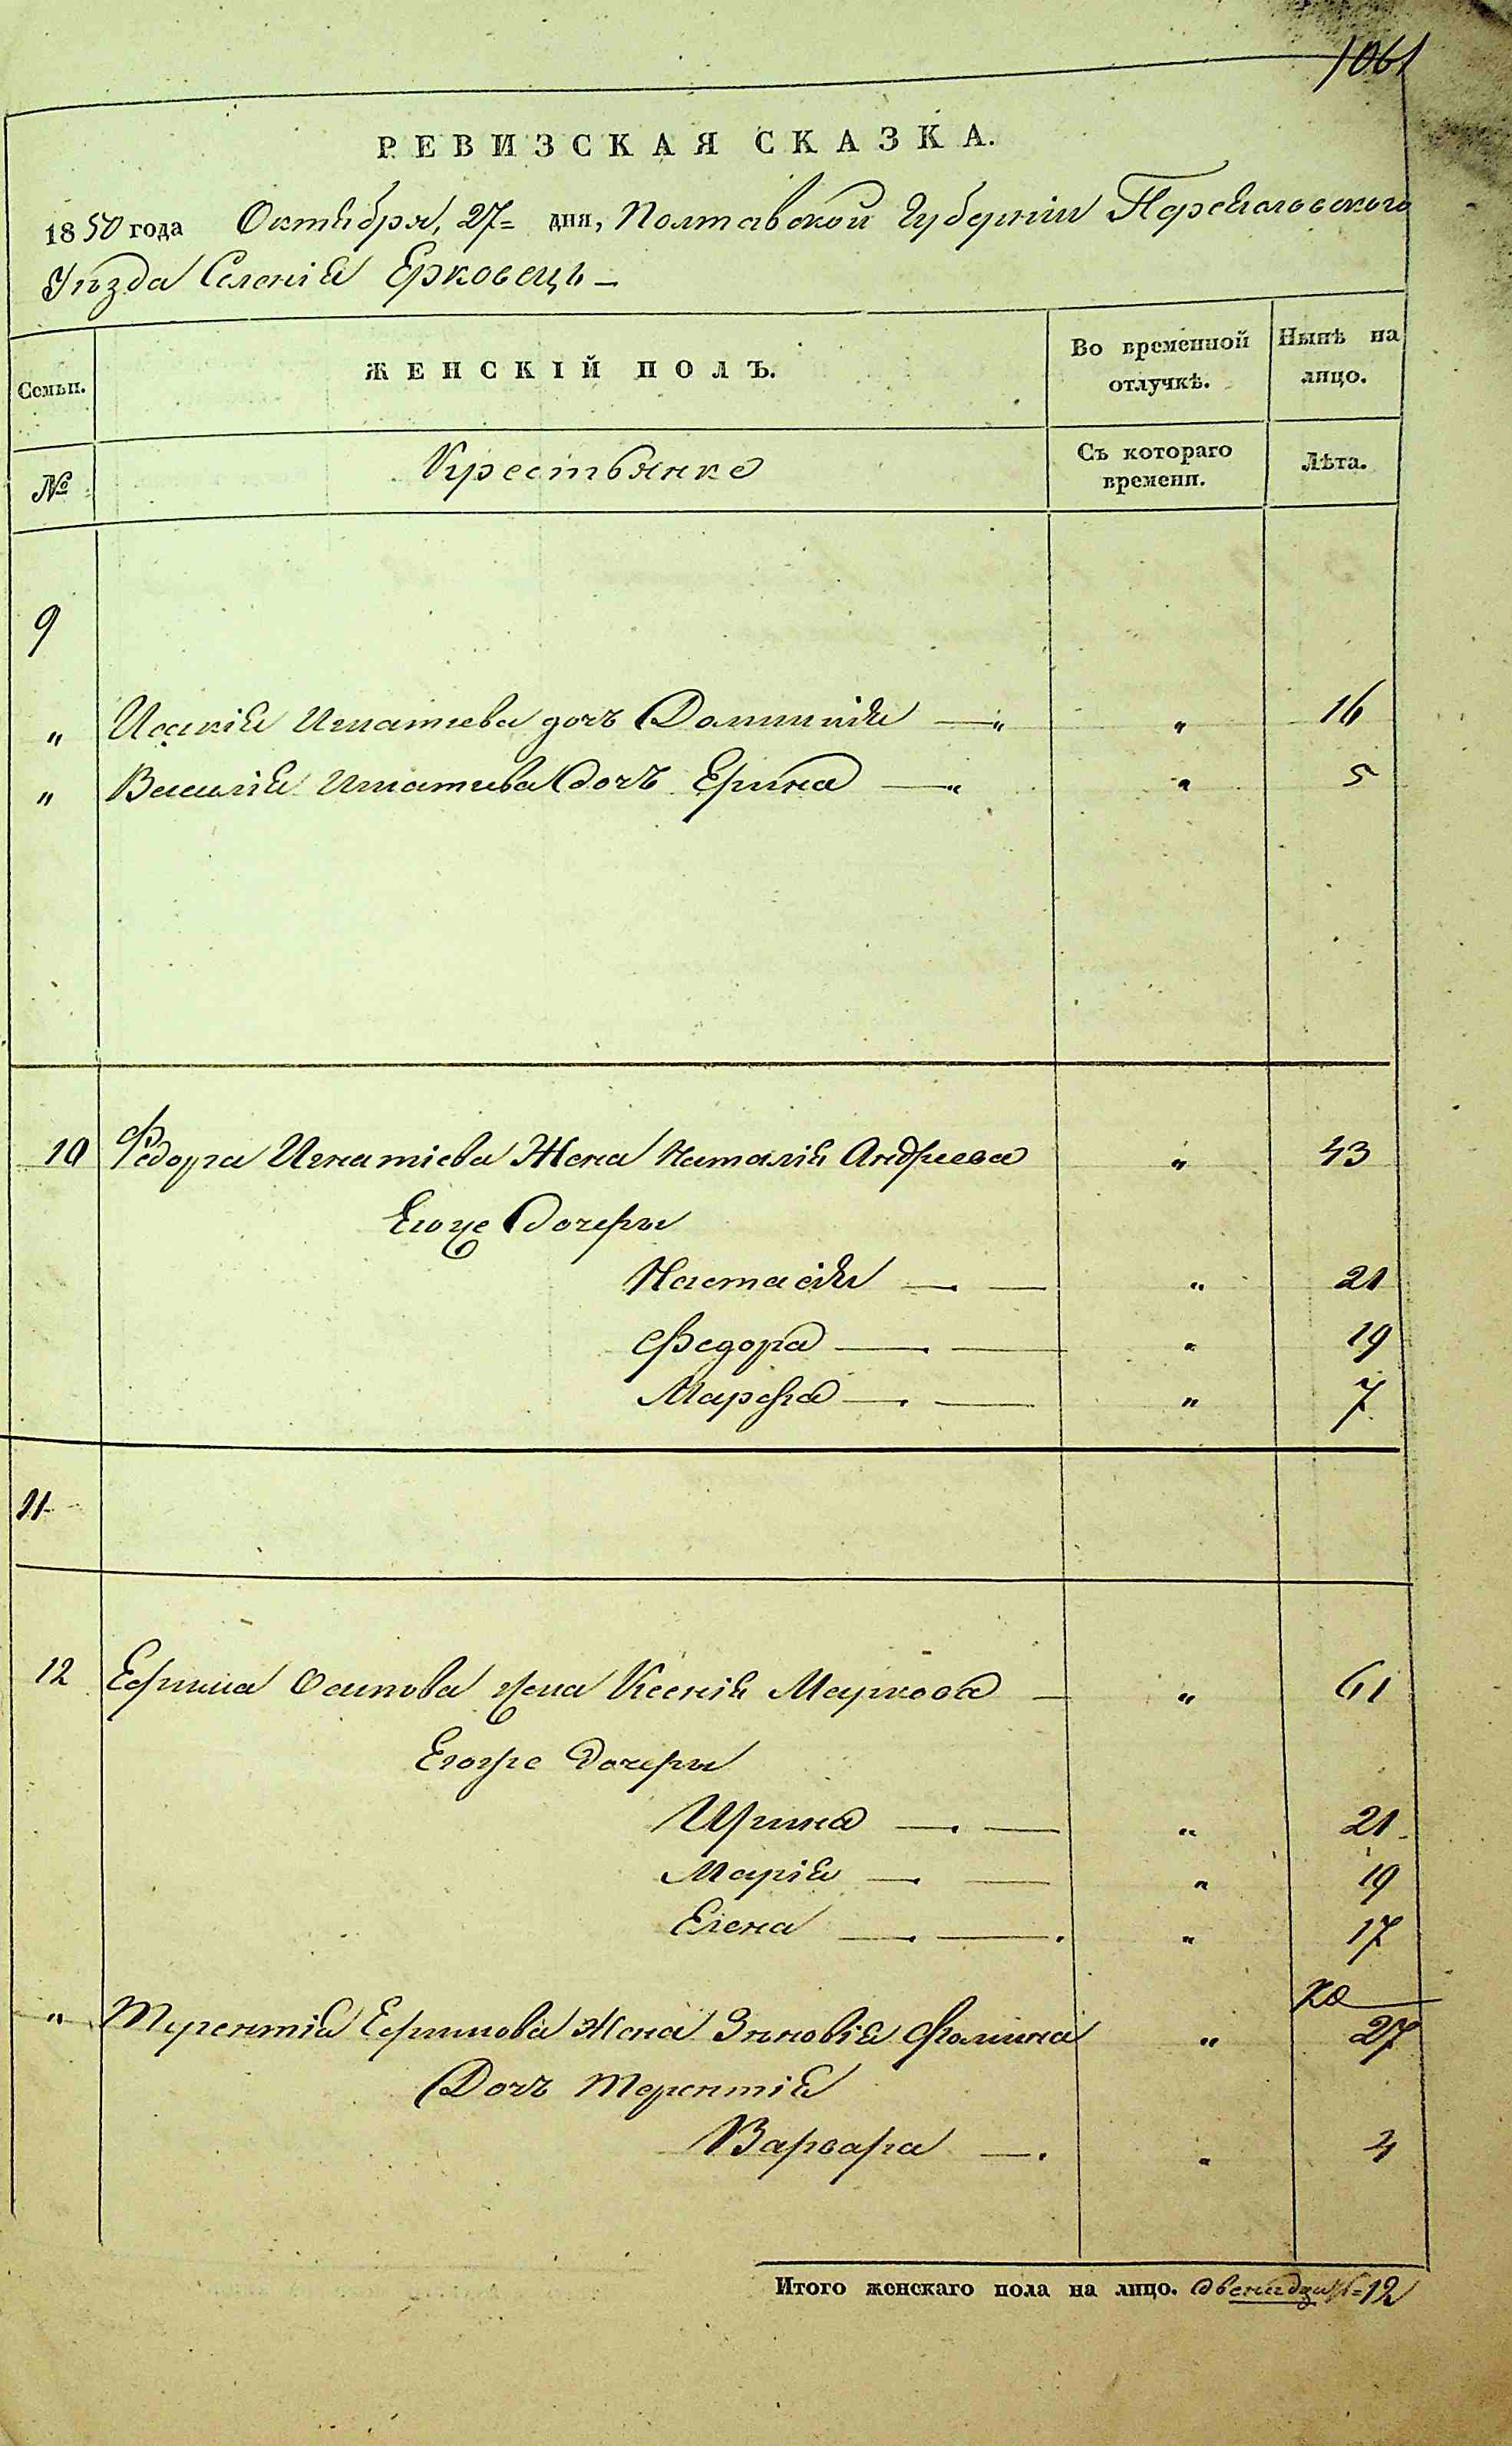 1061
РЕВИЗСКАЯ СКАЗКА.
1850 года Октября, 27 = дня, Полтавской Губернии Переяславского
Уѣзда Селенія Ерковець —
Семьи. ЖЕНСКІЙ ПОЛЪ. Во временной отлучкѣ. Нынѣ на лицо.
№ Крестьянке Съ котораго времени. Лѣта.
9
" Игнатиева дочь Домникія — " " 16
" Василія Игнатиева дочь Ерина — " " 5
10 Федора Игнатіева Жена Наталія Андреева " 43
Егоже Дочеры
Настасія — — " 21
Федора — — " 19
Марфа — — " 7
11
12 Ефима Осипова жена Ксенія Маркова — " 61
Егоже Дочеры
Ирина — — " 21
Марія — — " 19
Елена — — " 17
" Терентія Ефимова Жена Зѣновія Фомина " 27
Дочь Терентія
Варвара — " 4
Итого женскаго пола на лицо. двенадцать = 12